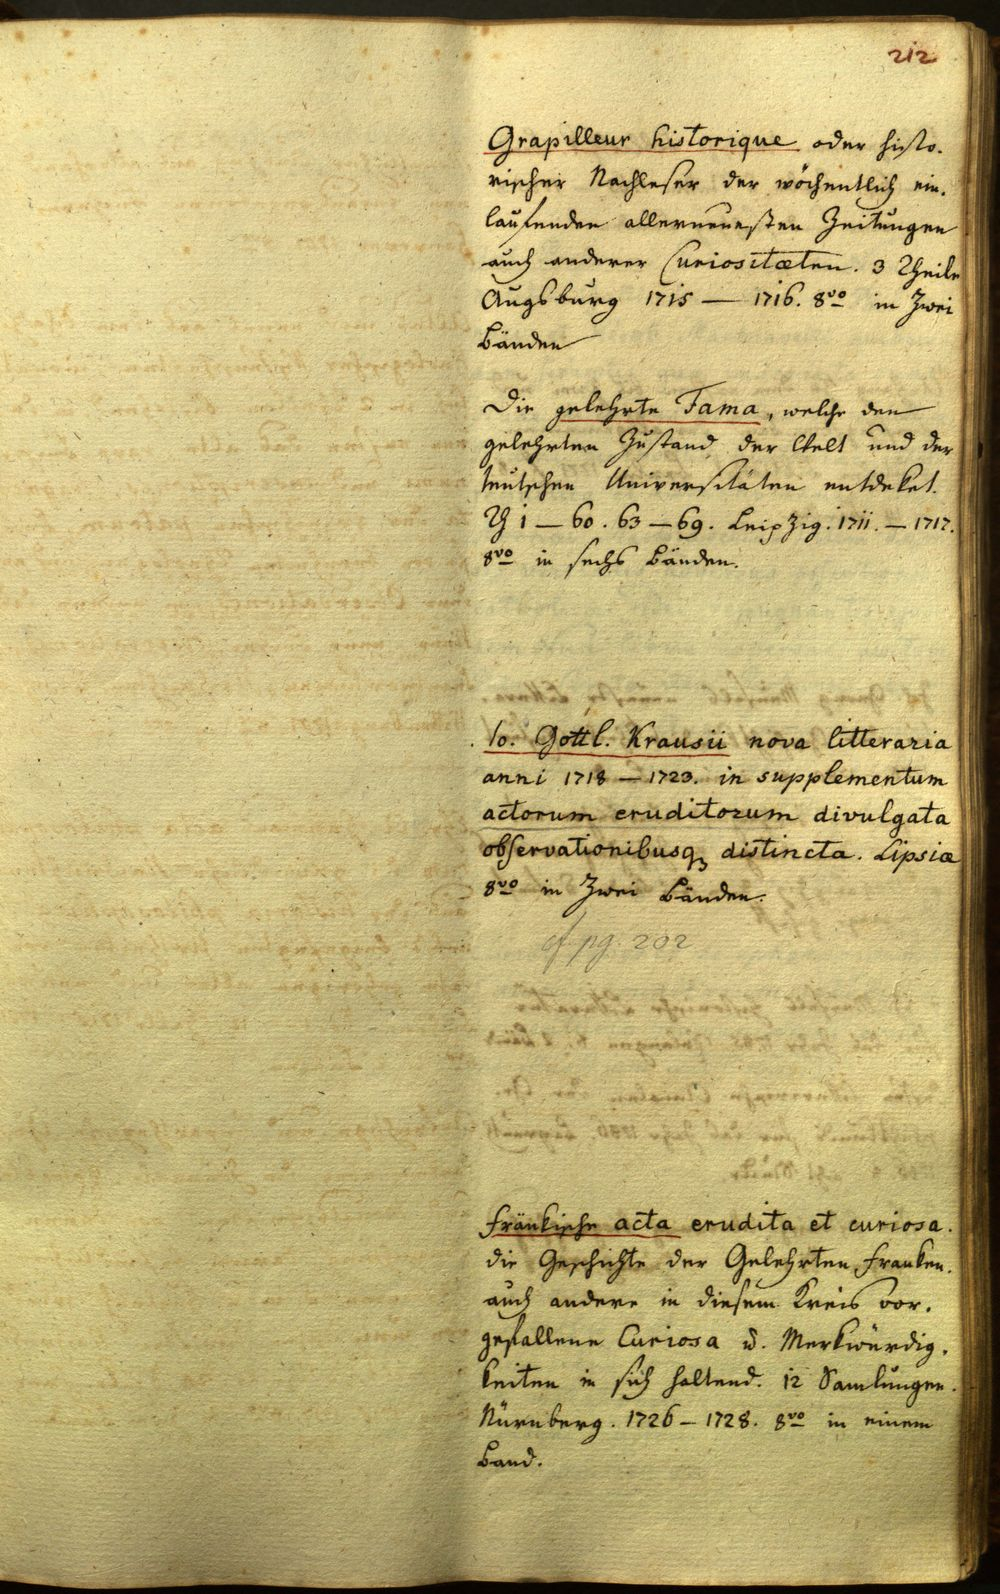 212
Grapilleur historique oder histo-
rischer Nachleser der wöchentlich ein-
laufenden allerneuesten Zeitungen
auch anderer Curiositæten. 3 Theile
Augsburg 1715 — 1716. 8vo in Zwei
Bänden
Die gelehrte Fama, welche den
gelehrten Zustand der Welt und der
teutschen Universitäten entdeket.
Th 1 — 60. 63 — 69. Leipzig. 1711. — 1717.
8vo in sechs Bänden.
Io. Gottl. Krausii nova litteraria
anni 1718 — 1723. in supplementum
actorum eruditorum divulgata
observationibusq distincta. Lipsiæ
8vo in Zwei Bänden.
cf. pg. 202
fränkische acta erudita et curiosa.
die Geschichte der Gelehrten Franken.
auch andere in diesem Kreis vor-
gefallene Curiosa u. Merkwürdig-
keiten in sich haltend. 12 Samlungen.
Nürnberg. 1726 — 1728. 8vo in einem
Band.